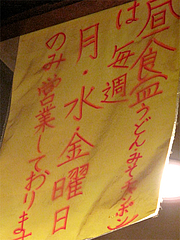 昼食皿うどん・みそ大ホシ
は毎週
月・水・金曜日
のみ営業しております